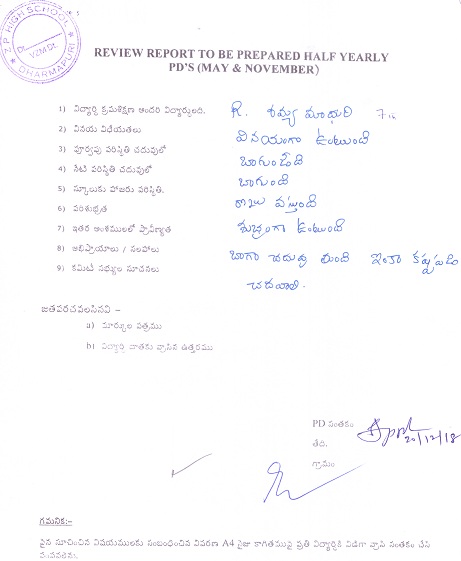 Z.P HIGH SCHOOL
DHARMAPURI
REVIEW REPORT TO BE PREPARED HALF YEARLY
PD'S (MAY & NOVEMBER)
1) విద్యార్థి క్రమశిక్షణ అందరి విద్యార్థులది. R. శమ్య మాధురి 7
2) వినయ విధేయతలు వినయంగా ఉంటుంది
3) పూర్వపు పరిస్థితి చదువులో బాగుండేది
4) నేటి పరిస్థితి చదువులో బాగుంది
5) స్కూలుకు హాజరు పరిస్థితి. రోజు వస్తుంది
6) పరిశుభ్రత శుభ్రంగా ఉంటుంది
7) ఇతర అంశములలో ప్రావీణ్యత
8) అభిప్రాయాలు / సలహాలు బాగా చదువు తుంది ఇంకా కష్టపడి
9) కమిటీ సభ్యుల సూచనలు చదవాలి.
జతపరచవలసినవి –
a) మార్కుల పత్రము
b) విద్యార్థి వ్రాసిన ఉత్తరము
PD సంతకం
తేది. 20/12/18
గ్రామం
గమనిక:-
పైన సూచించిన విషయములకు సంబంధించిన వివరణ A4 సైజు కాగితముపై ప్రతి విద్యార్థికి విడిగా వ్రాసి సంతకం చేసి